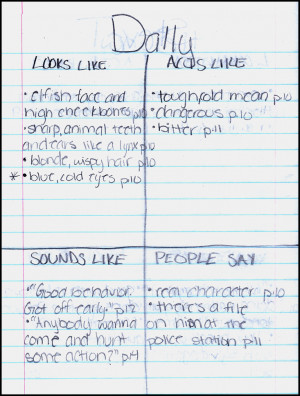 Dally
LOOKS LIKE
• elfish face and
high cheekbones p10
• sharp, animal teeth
and ears like a lynx p10
• blonde, wispy hair p10
* • blue, cold eyes p10
ACTS LIKE
• "tough, cold mean" p10
• dangerous p10
• bitter p11
SOUNDS LIKE
• "Good behavior.
Got off early." p12
• "Anybody wanna
come and hunt
some action?" p14
PEOPLE SAY
• real character p10
• there's a file
on him at the
police station p11